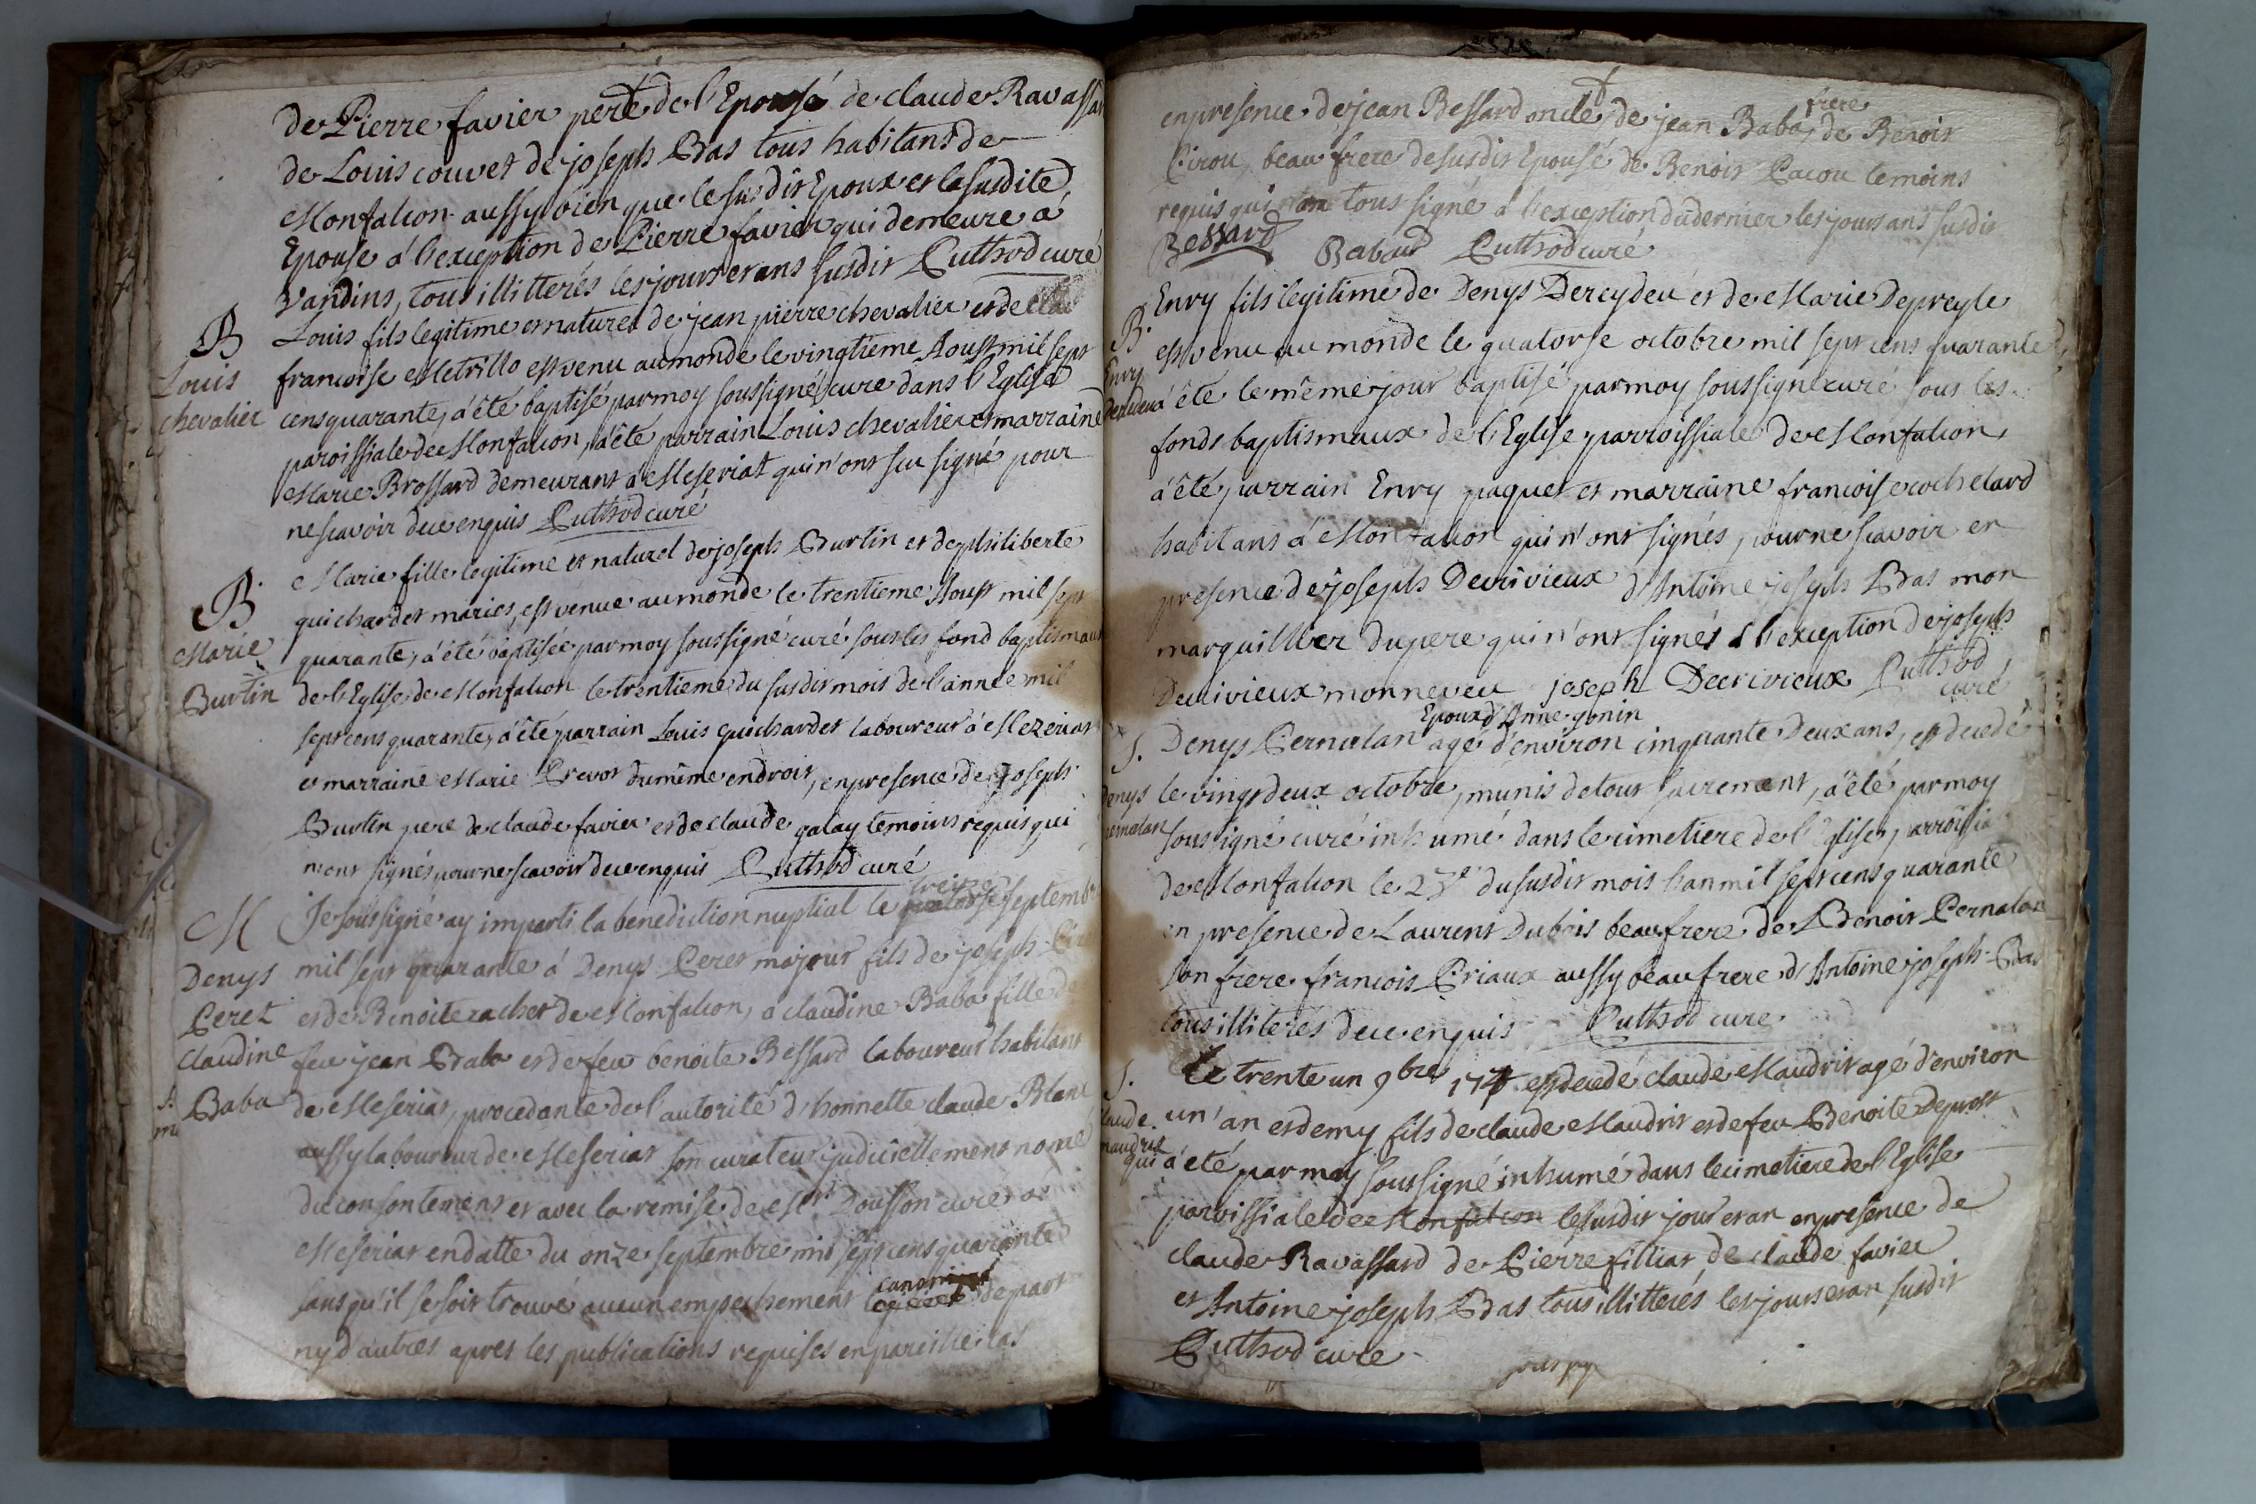 de Pierre favier pere de l'Epousé de claude Ravassard
de Louis couvet de joseph Bas tous habitans de
Monfalcon aussy bien que le susdit Epoux et la susdite
Epouse á l'exception de Pierre favier qui demeure á
Vandins, tous illitterés les jours et ans susdit Cuthod curé
B
Louis
chevalier
Louis fils legitime et naturel de jean pierre chevalier et de
francoise Metrillo est venu au monde le vingtieme Aoust mil sept
cens quarante, a'été baptisé par moy soussigné curé dans l'Eglise
paroissiale de Monfalcon, a'été parrain Louis chevalier et marraine
Marie Brossard demeurant á Meseriat qui n'ont scu signé pour
ne scavoir de ce enquis Cuthod curé
B
Marie
Burtin
Marie fille legitime et naturel de joseph Burtin et de philiberte
quichardet mariés, est venue au monde le trentieme Aoust mil sept
quarante, a'été baptisée par moy soussigné curé sous les fond baptismaux
de l'Eglise de Monfalcon le trentieme du susdit mois de l'année mil
sept cens quarante, a'été parrain Louis quichardet laboureur á Mezeriat
et marraine Marie Prevot du même endroit, en presence de joseph
Burtin pere de claude favier et de claude galay temoins requis qui
n'ont signés pour ne scavoir de ce enquis Cuthod curé
M
Denys
Peret
claudine
Baba
treize
Je soussigné ay imparti la benediction nuptial le quatorse septembre
mil sept quarante á Denys Peret majour fils de joseph
et de Benoite racher de Monfalcon, a claudine Baba fille de
feu jean Baba et de feu benoite Bessard laboureur habitans
de Meseriat, procedante de l'autorité d'honnette claude Blanc
aussy laboureur de Meseriat son curateur judiciellement nomé
du consentement et avec la remise de Mr Dousson curé de
Meseriat en datte du onze septembre mil sept cens quarante
canonique
sans qu'il se soit trouvé aucun empechement de part
ny d'autres apres les publications requises en pareille cas
en presence de jean Bessard oncle, de jean Baba, frere de Benoit
Cirou, beau frere de susdit Epousé de Benoit Pacou temoins
requis qui ont tous signé á l'exception du dernier les jours ans susdit
Bessard Babad Cuthod curé
B.
Envy
dercydeu
Envy fils legitime de Denys Dercydeu et de Marie Depreyle
est venu au monde le quatorse octobre mil sept cens quarante,
a'été le même jour baptisé par moy soussigné curé sous les
fonds baptismaux de l'Eglise parroissiale de Monfalcon,
a'été parrain Envy paquet et marraine francoise cochelard
habitans á Monfalcon qui n'ont signés, pour ne scavoir en
presence de joseph Decrivieux d'Antoine joseph Bas mon
marquillier du pere qui n'ont signés á l'exception de joseph
Decrivieux mon neveu joseph Decrivieux Cuthod
curé
S.
Denys
pernalan
Epoux d'Anne gonin
Denys Pernalan agé d'environ cinquante deux ans, est decedé
le vingt deux octobre, munis de tout sacrement, a'été par moy
soussigné curé inhumé dans le cimetiere de l'Eglise, parroissia
de Monfalcon le 23e du susdit mois l'an mil sept cens quarante
en presence de Laurent Dubois beaufrere de Benoit Pernalan
son frere francois Priaux aussy beau frere d'Antoine joseph Bas
tous illiterés de ce enquis Cuthod curé
S.
claude
maudrit
Le trente un 9bre 174 est decedé claude Maudrit agé d'environ
un'an et demy fils de claude Maudrit et de feu Benoite Deprost
qui a'été par moy soussigné inhumé dans le cimetiere de l'Eglise
paroissiale de Monfalcon le susdit jour et an en presence de
claude Ravassard de Pierre filliat de claude favier
et Antoine joseph Bas tous illitterés les jours et an susdit
Cuthod curé